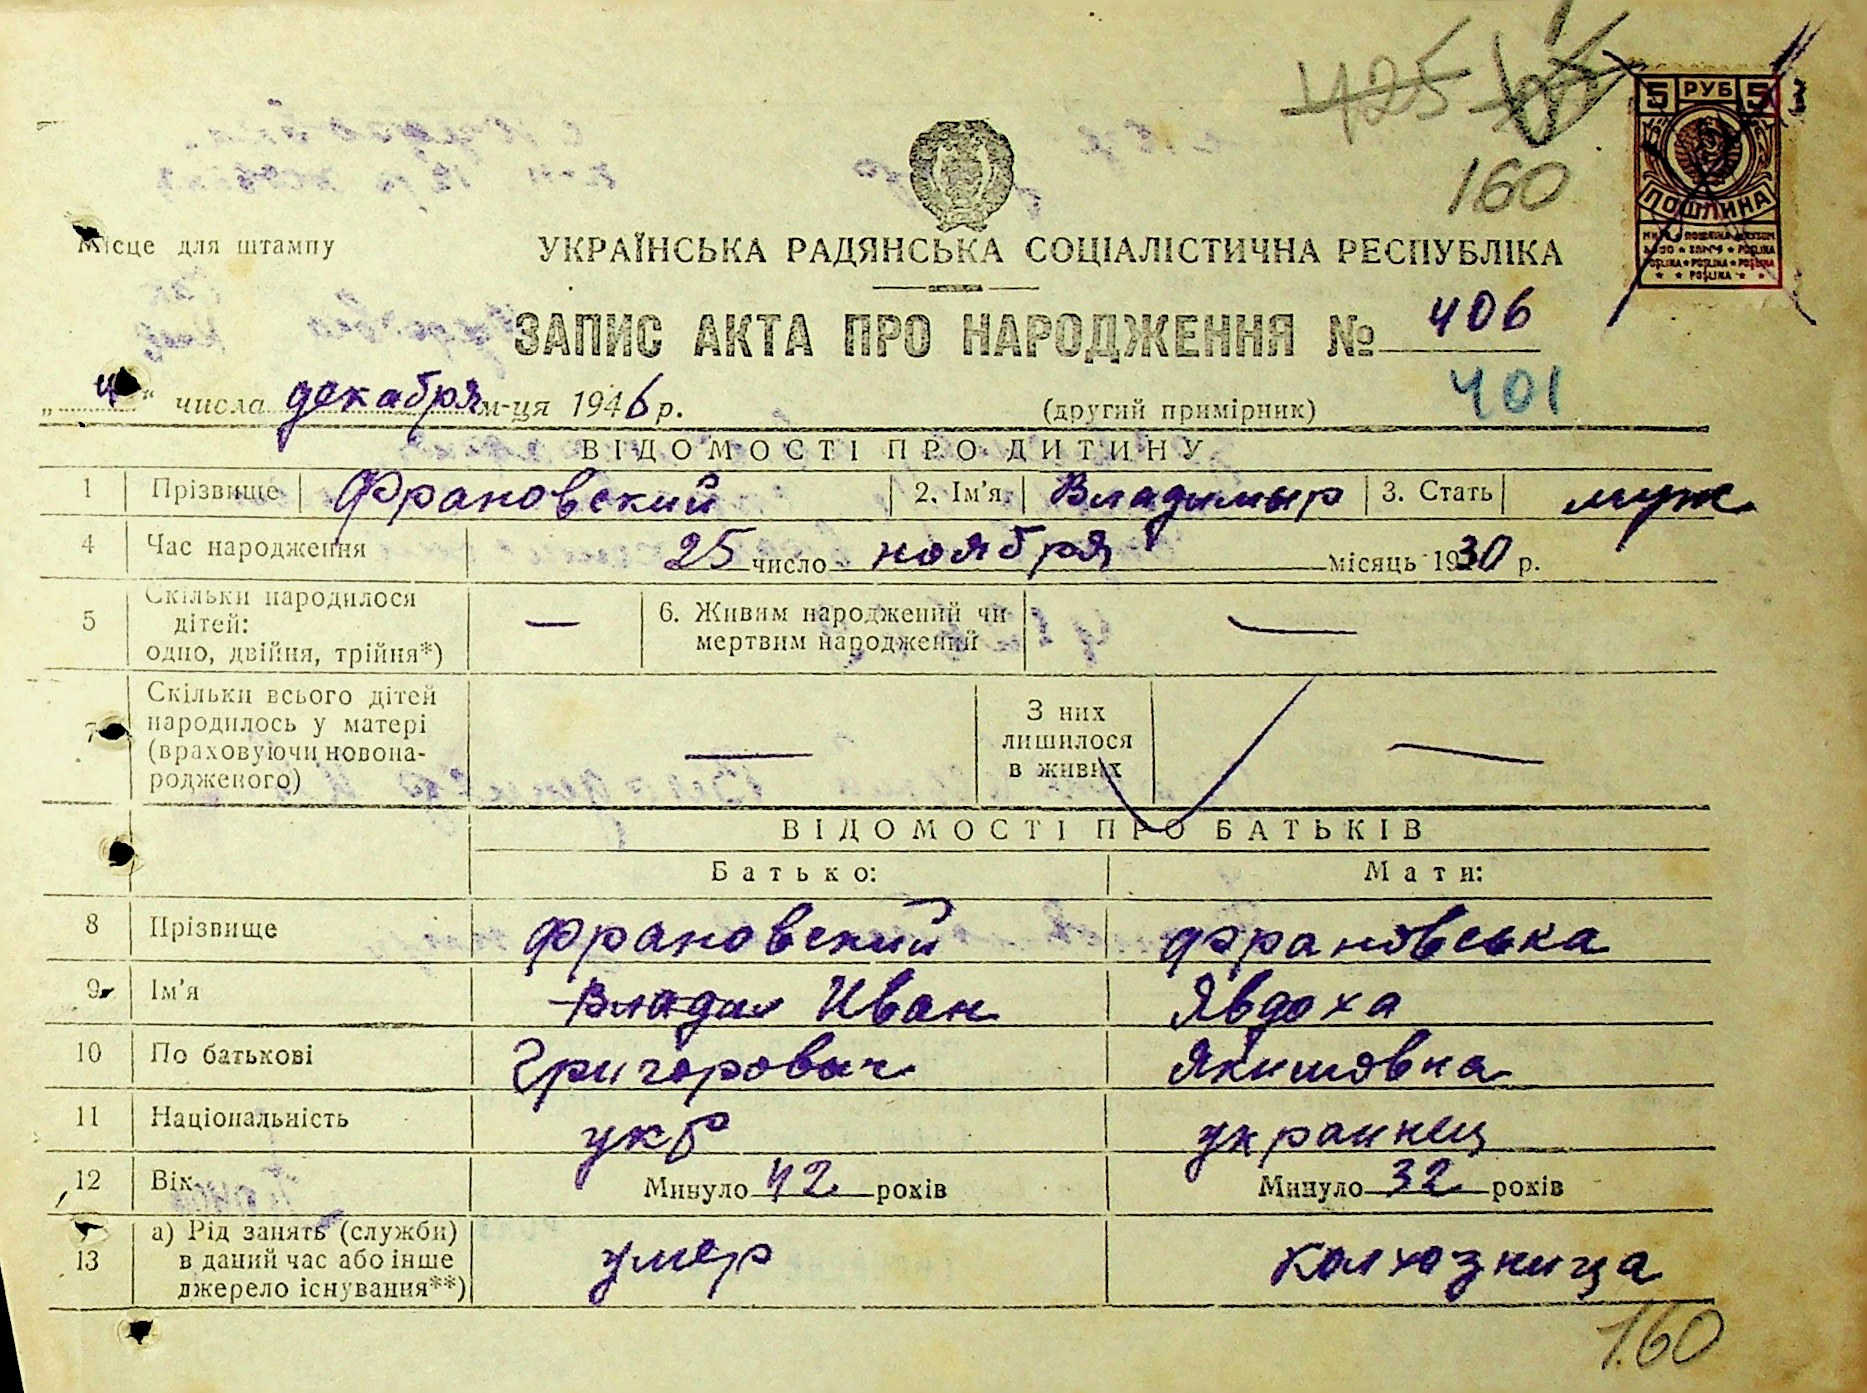 425
160
5 РУБ 5
ПОШЛИНА
Місце для штампу
УКРАЇНСЬКА РАДЯНСЬКА СОЦІАЛІСТИЧНА РЕСПУБЛІКА
ЗАПИС АКТА ПРО НАРОДЖЕННЯ № 406
„4" числа декабря м-ця 1946 р. (другий примірник) 401
ВІДОМОСТІ ПРО ДИТИНУ
1 Прізвище Франовский 2. Ім'я Владимыр 3. Стать муж
4 Час народження 25 число ноября місяць 1930 р.
5 Скільки народилося дітей: одно, двійня, трійня*) — 6. Живим народжений чи мертвим народжений —
7 Скільки всього дітей народилось у матері (враховуючи новонародженого) — З них лишилося в живих —
ВІДОМОСТІ ПРО БАТЬКІВ
Батько: Мати:
8 Прізвище Франовский Франовська
9 Ім'я Влади Иван Явдоха
10 По батькові Григорович Якимовна
11 Національність укр украинец
12 Вік Минуло 42 років Минуло 32 років
13 а) Рід занять (служби) в даний час або інше джерело існування**) умер колхозница
160